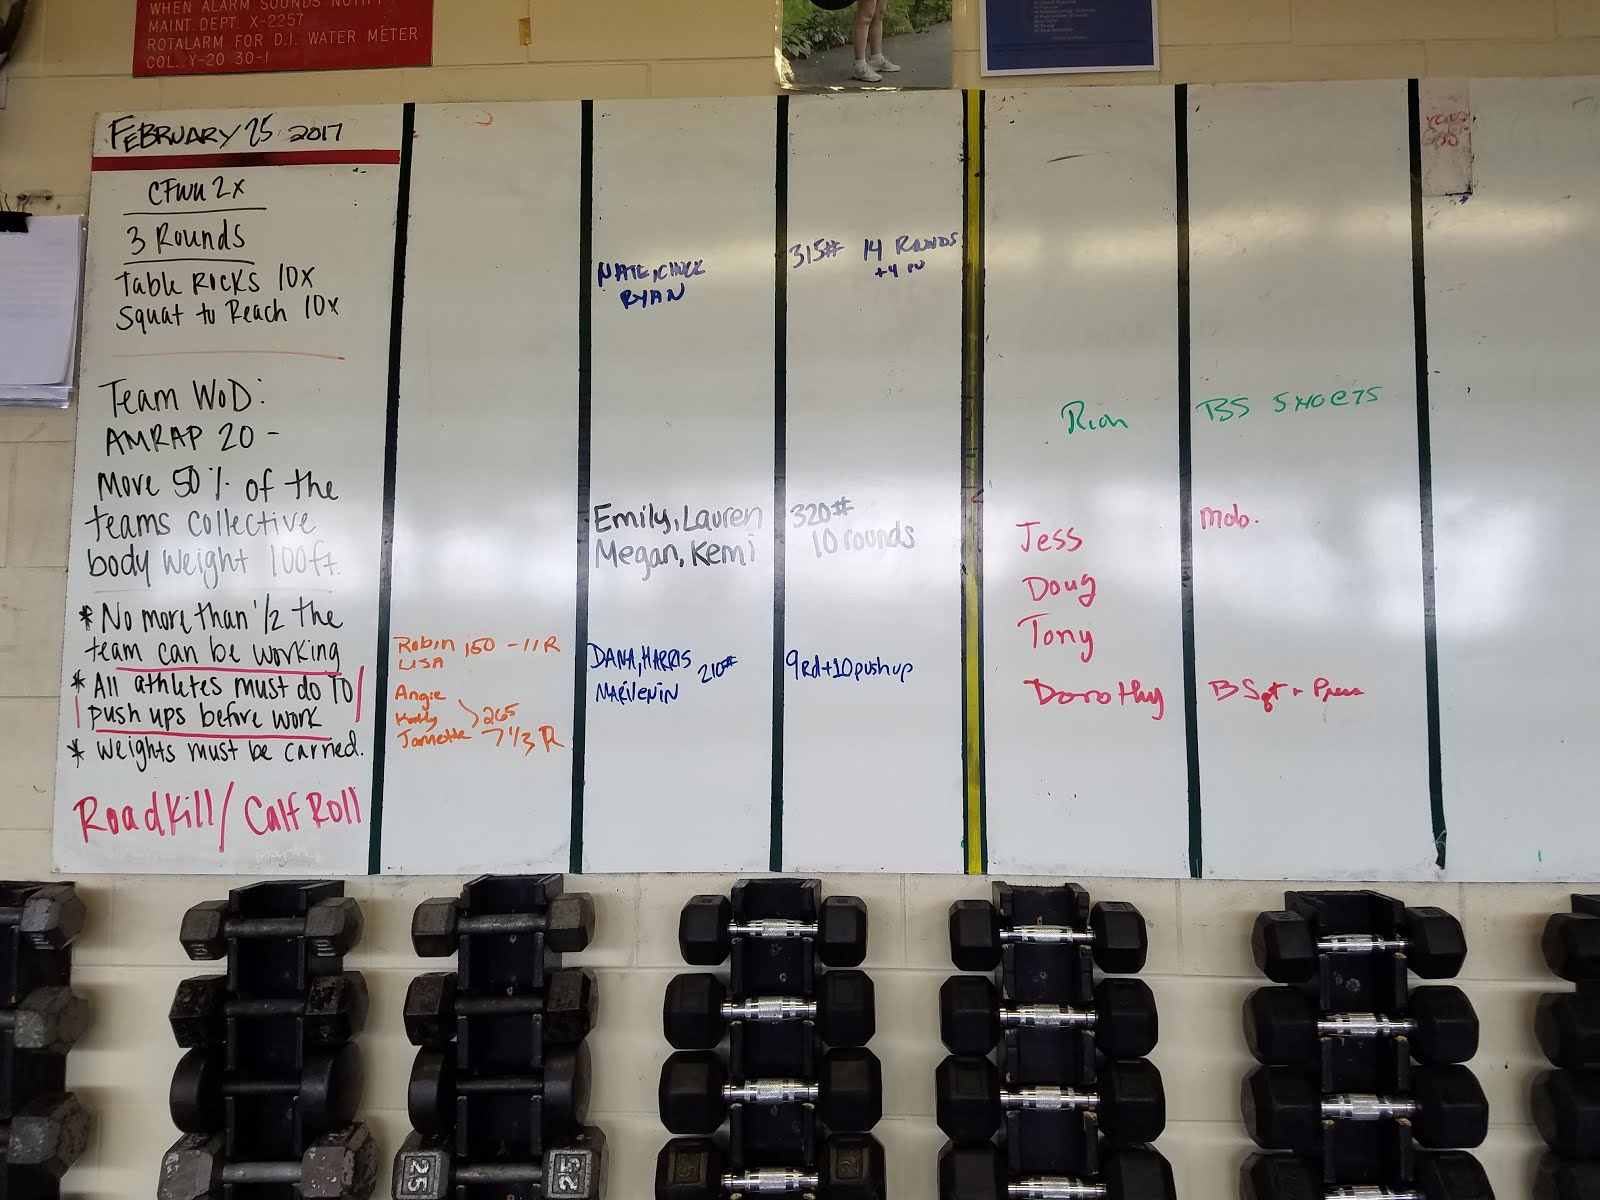 WHEN ALARM SOUNDS NOTIFY
MAINT. DEPT. X-2257
ROTALARM FOR D.I. WATER METER
COL. Y-20 30-1
FEBRUARY 25 2017
CFWU 2x
3 Rounds
Table Rocks 10x
Squat to Reach 10x
Team WoD:
AMRAP 20 -
Move 50% of the
teams collective
body weight 100ft.
* No more than 1/2 the
team can be working
* All athletes must do 10
push ups before work
* Weights must be carried.
Road Kill / Calf Roll
Robin 150 - 11 R
LISA
Angie
Kelly 265
Jannette 7 1/3 R
NATE, CHUCK
RYAN
315# 14 ROUNDS
+4 PU
Emily, Lauren
Megan, Kemi
320#
10 rounds
DANA, HARRIS 210#
MARIVENIN
9rd+10pushup
Rion
BS 5 HOE75
Jess
Mob.
Doug
Tony
Dorothy
B Sqt + Press
25
25